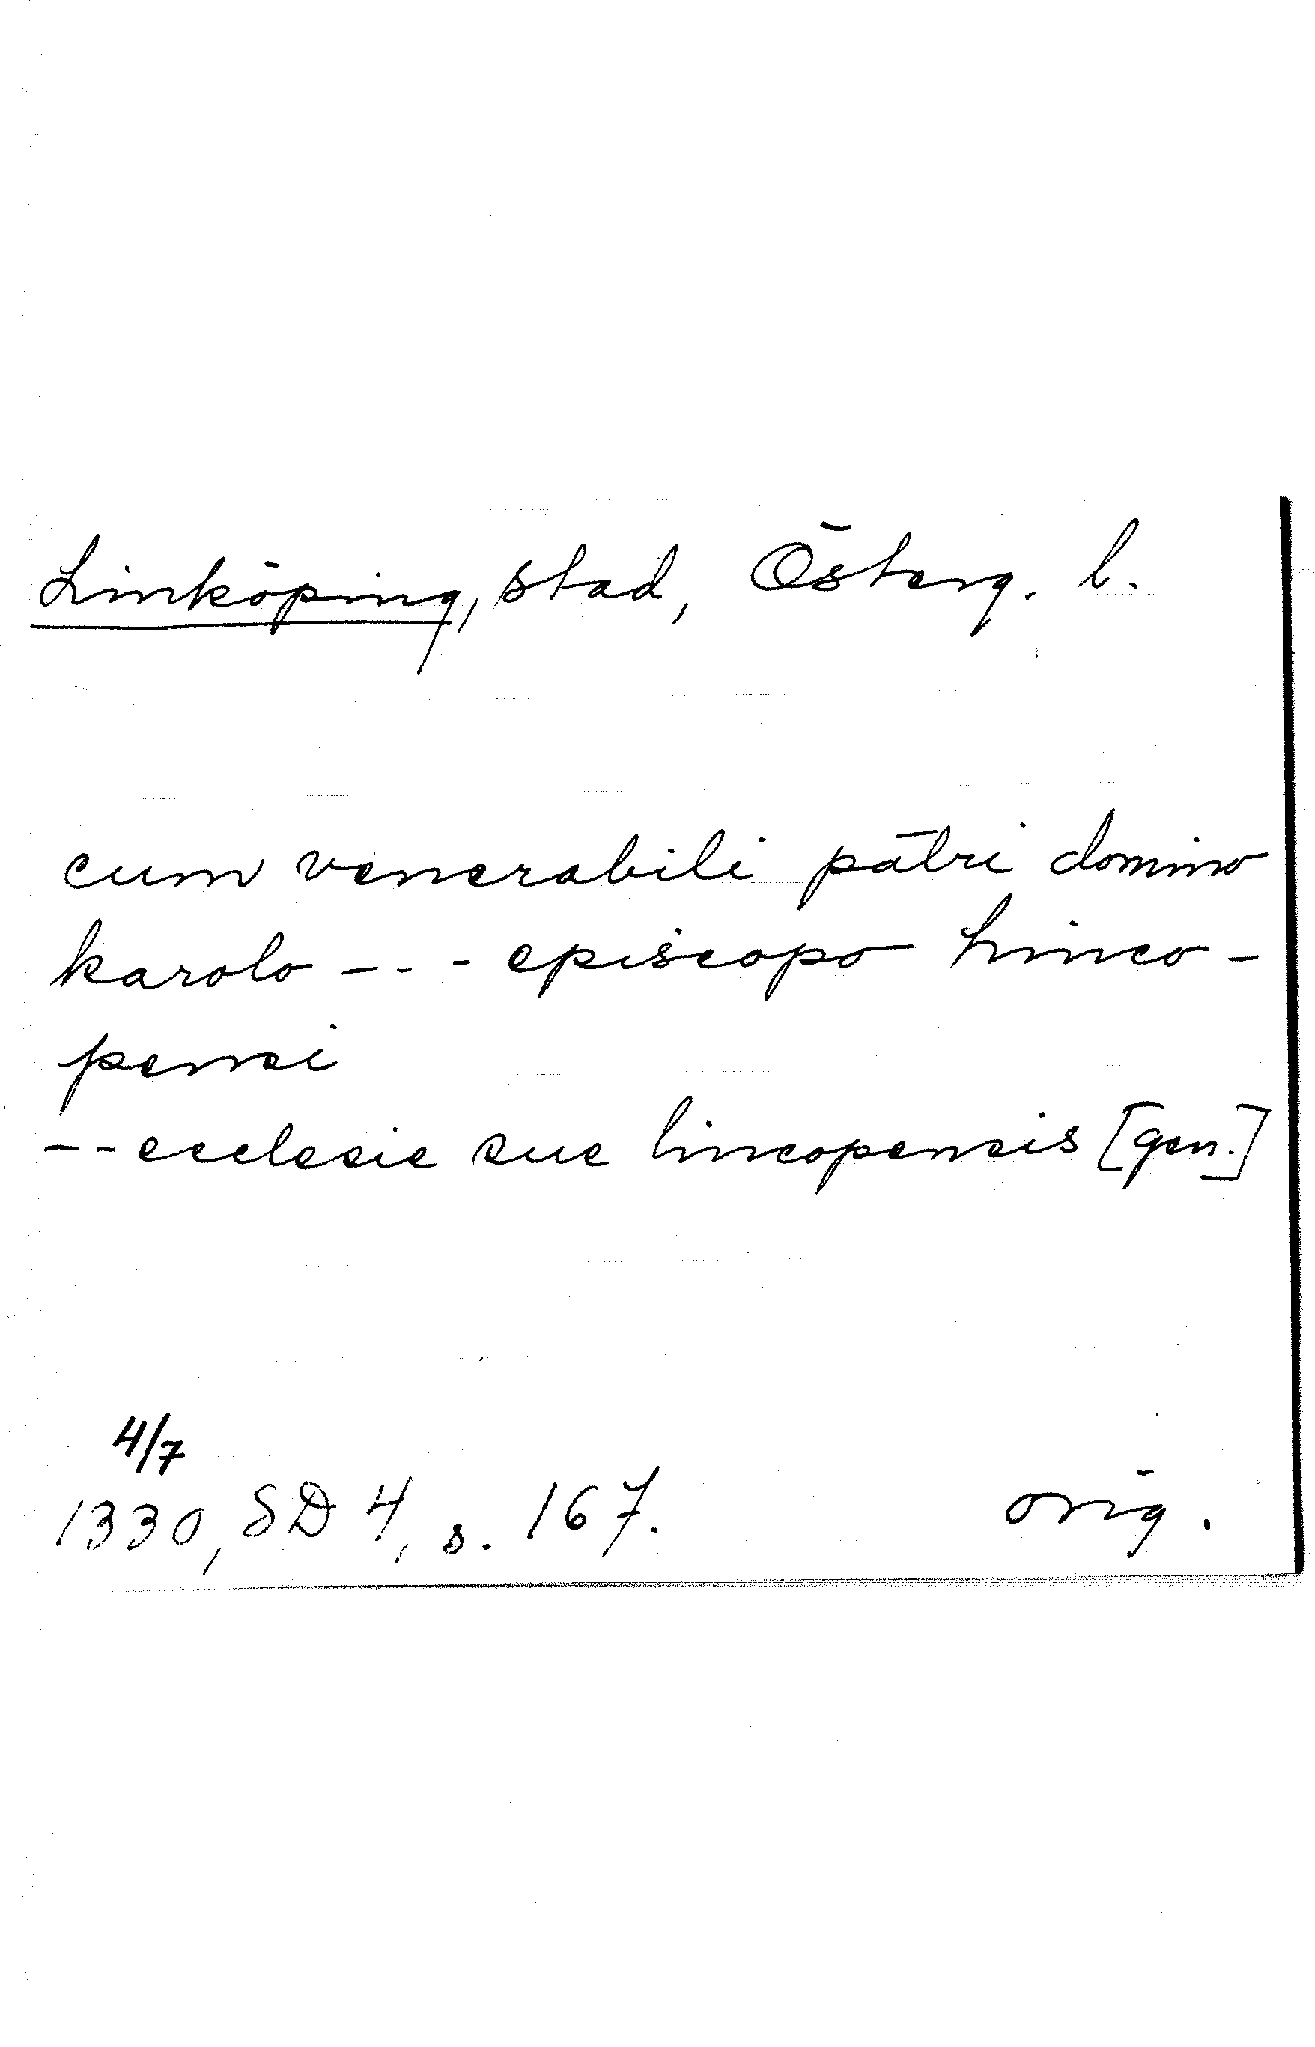 Linköping, stad, Österg. l.
cum venerabili patri domino
karolo - - - episcopo linco-
pensi
- - ecclesie sue lincopensis [gen.]
4/7
1330, SD 4, s. 167. orig.